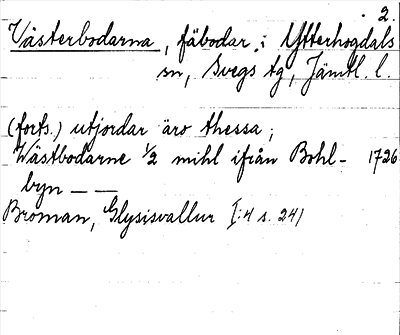 2.
Västerbodarna, fäbodar i Ytterhogdals
sn, Svegs tg, Jämtl. l.
(forts.) utjordar äro thessa;
Wästbodarne 1/2 mihl ifrån Bohl- 1726
byn — —
Broman, Glysisvallur I:4 s. 241